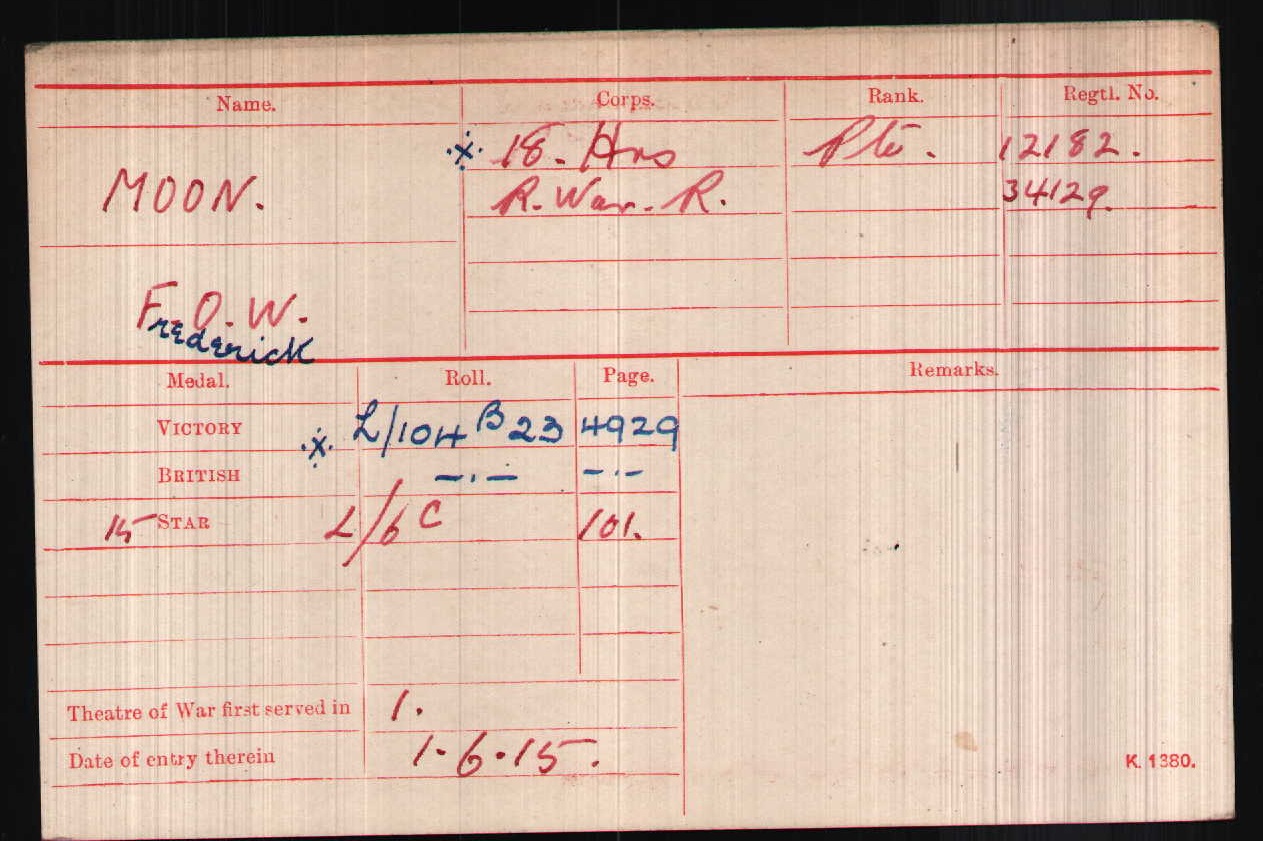 Name. Corps. Rank. Regtl. No.
·x· 18. Hrs Pte. 12182.
MOON. R. War. R. 34129.
F. O. W.
Frederick
Medal. Roll. Page. Remarks.
VICTORY ·x· L/104 B 23 4929
BRITISH —·— —·—
15 STAR L/6 C 101.
Theatre of War first served in 1.
Date of entry therein 1·6·15.
K. 1380.